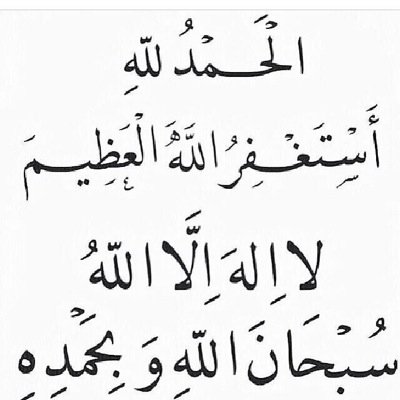 الْحَمْدُ لِلّٰهِ
أَسْتَغْفِرُ اللّٰهَ الْعَظِيمَ
لَا اِلٰهَ اِلَّا اللّٰهُ
سُبْحَانَ اللّٰهِ وَ بِحَمْدِهِ